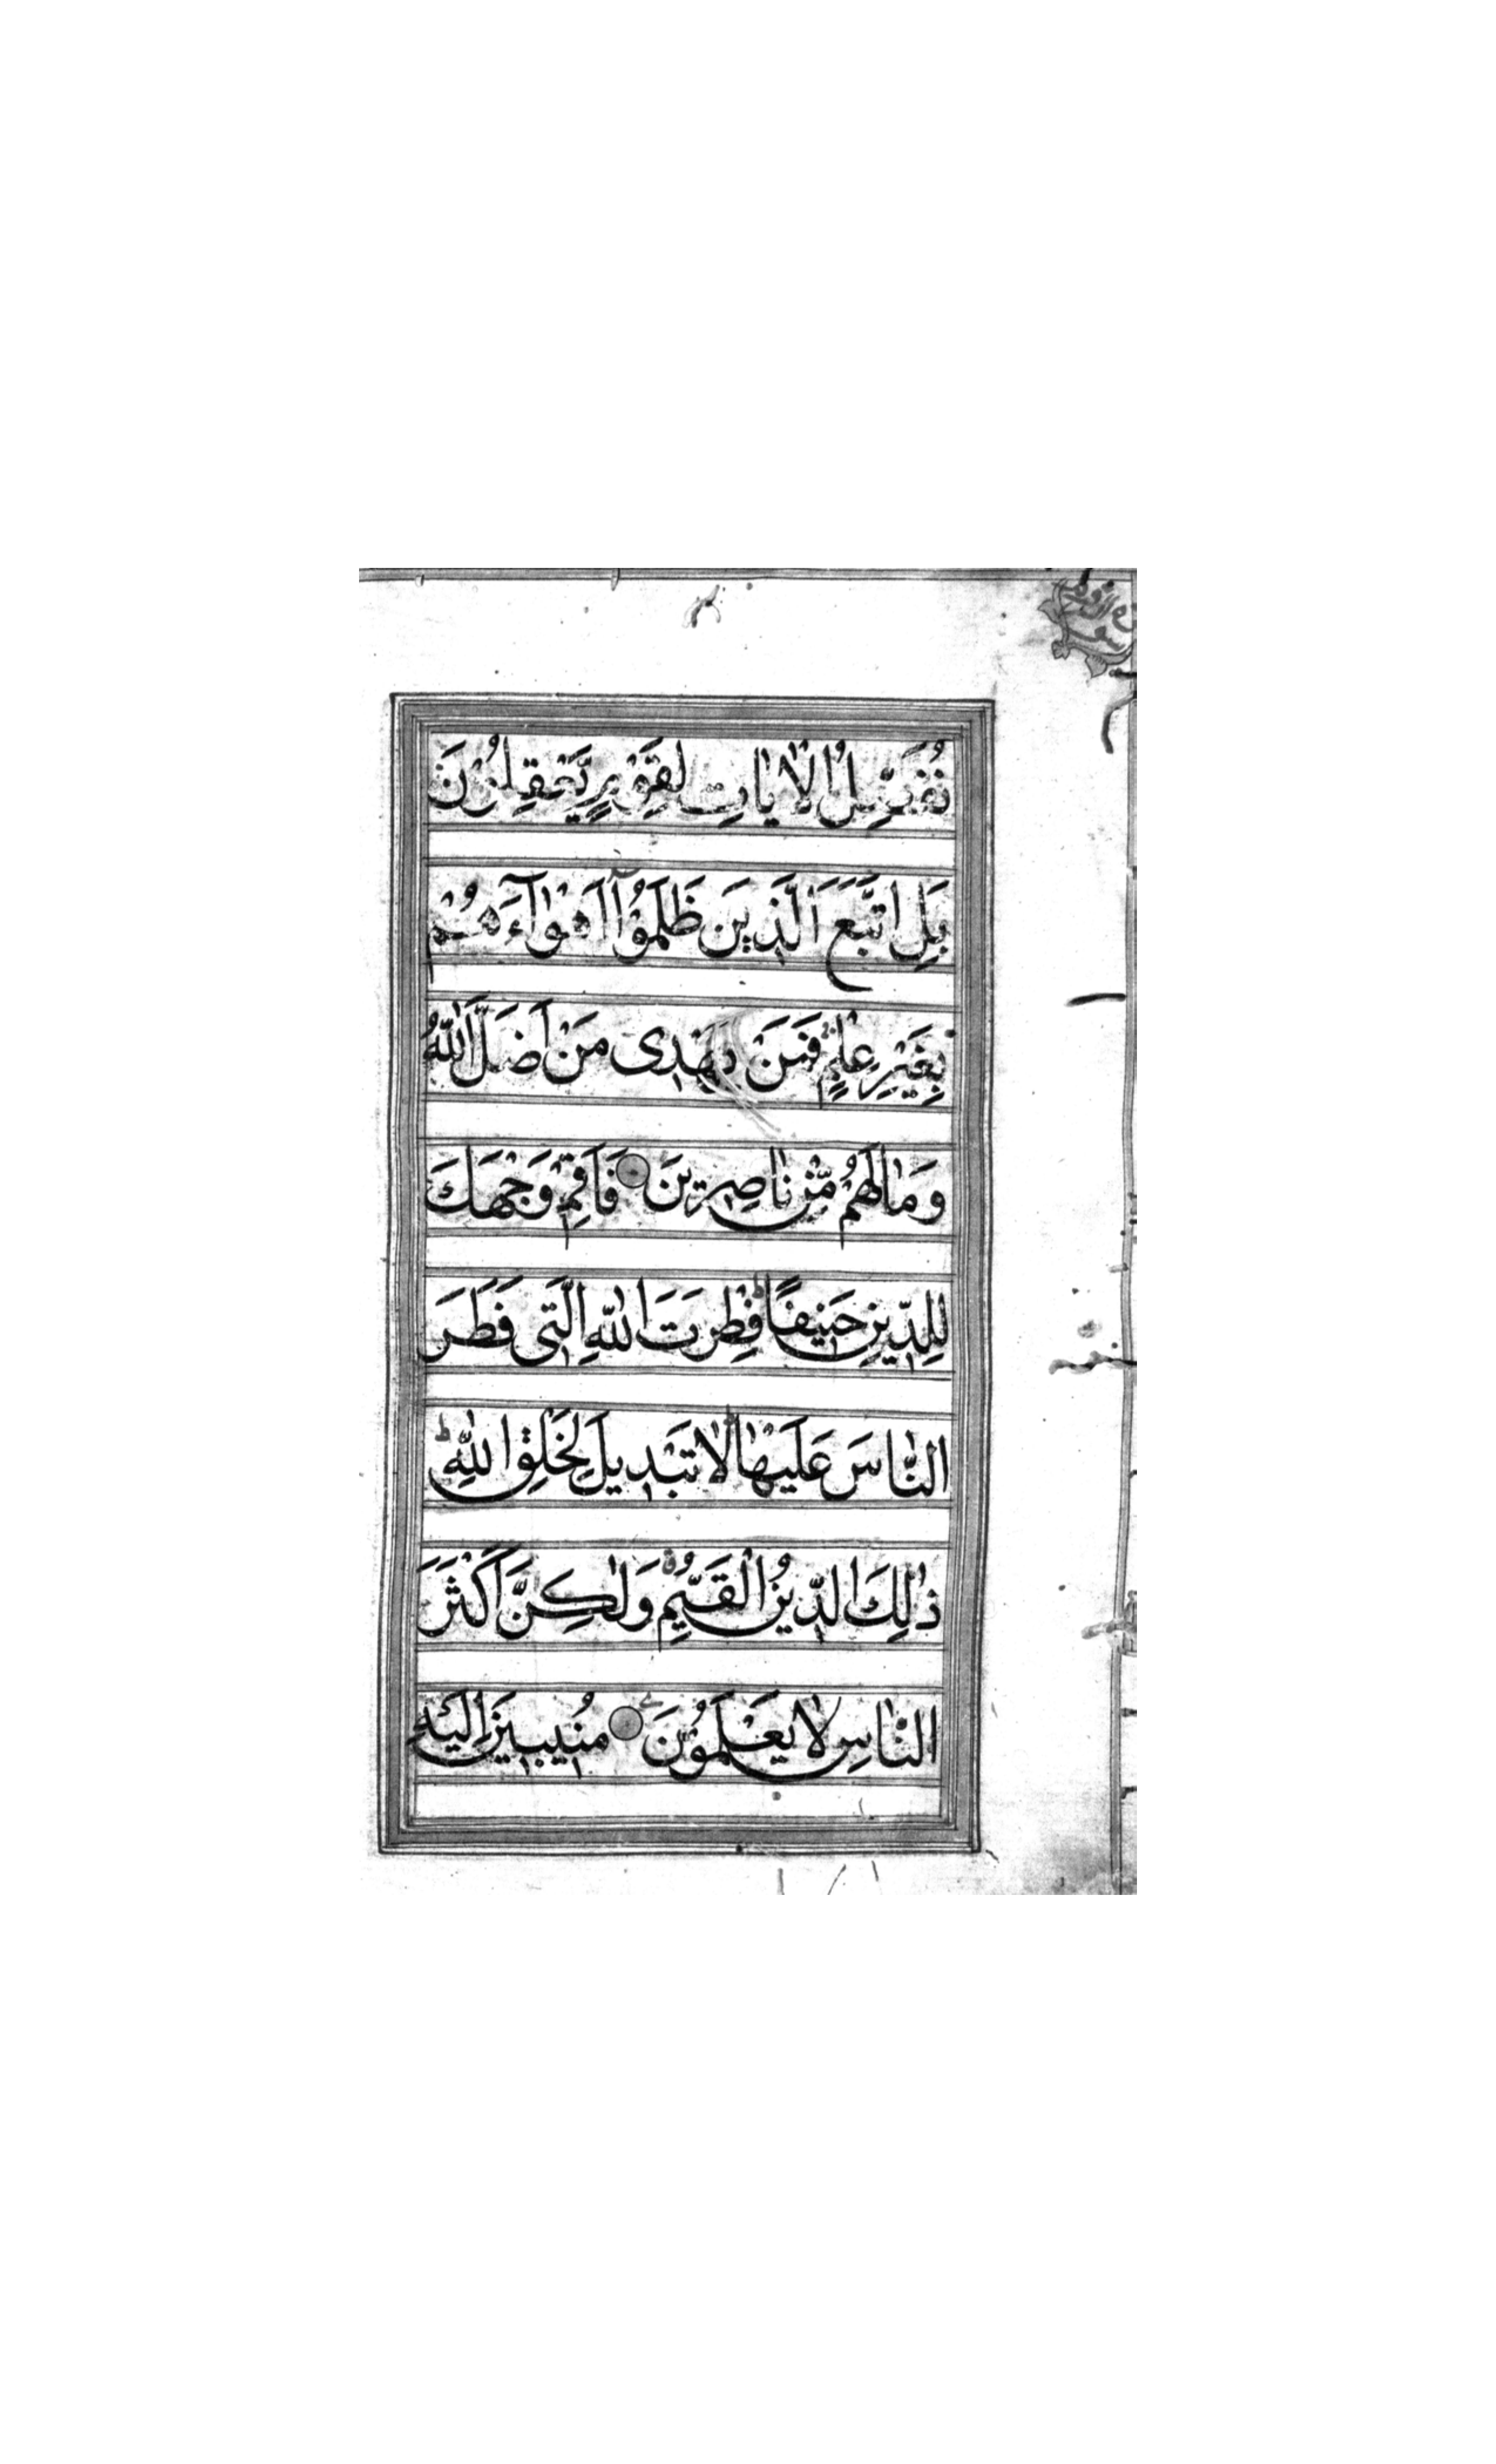 نُفَصِّلُ الْاٰيَاتِ لِقَوْمٍ يَّعْقِلُوْنَ
بَلِ اتَّبَعَ الَّذِيْنَ ظَلَمُوْٓا اَهْوَآءَهُمْ
بِغَيْرِ عِلْمٍ فَمَنْ يَهْدِى مَنْ اَضَلَّ اللّٰهُ
وَمَا لَهُمْ مِّنْ نَاصِرِيْنَ فَاَقِمْ وَجْهَكَ
لِلدِّيْنِ حَنِيْفًا ط فِطْرَتَ اللّٰهِ الَّتِى فَطَرَ
النَّاسَ عَلَيْهَا لَا تَبْدِيْلَ لِخَلْقِ اللّٰهِ ط
ذٰلِكَ الدِّيْنُ الْقَيِّمُ وَلٰكِنَّ اَكْثَرَ
النَّاسِ لَا يَعْلَمُوْنَ مُنِيْبِيْنَ اِلَيْهِ